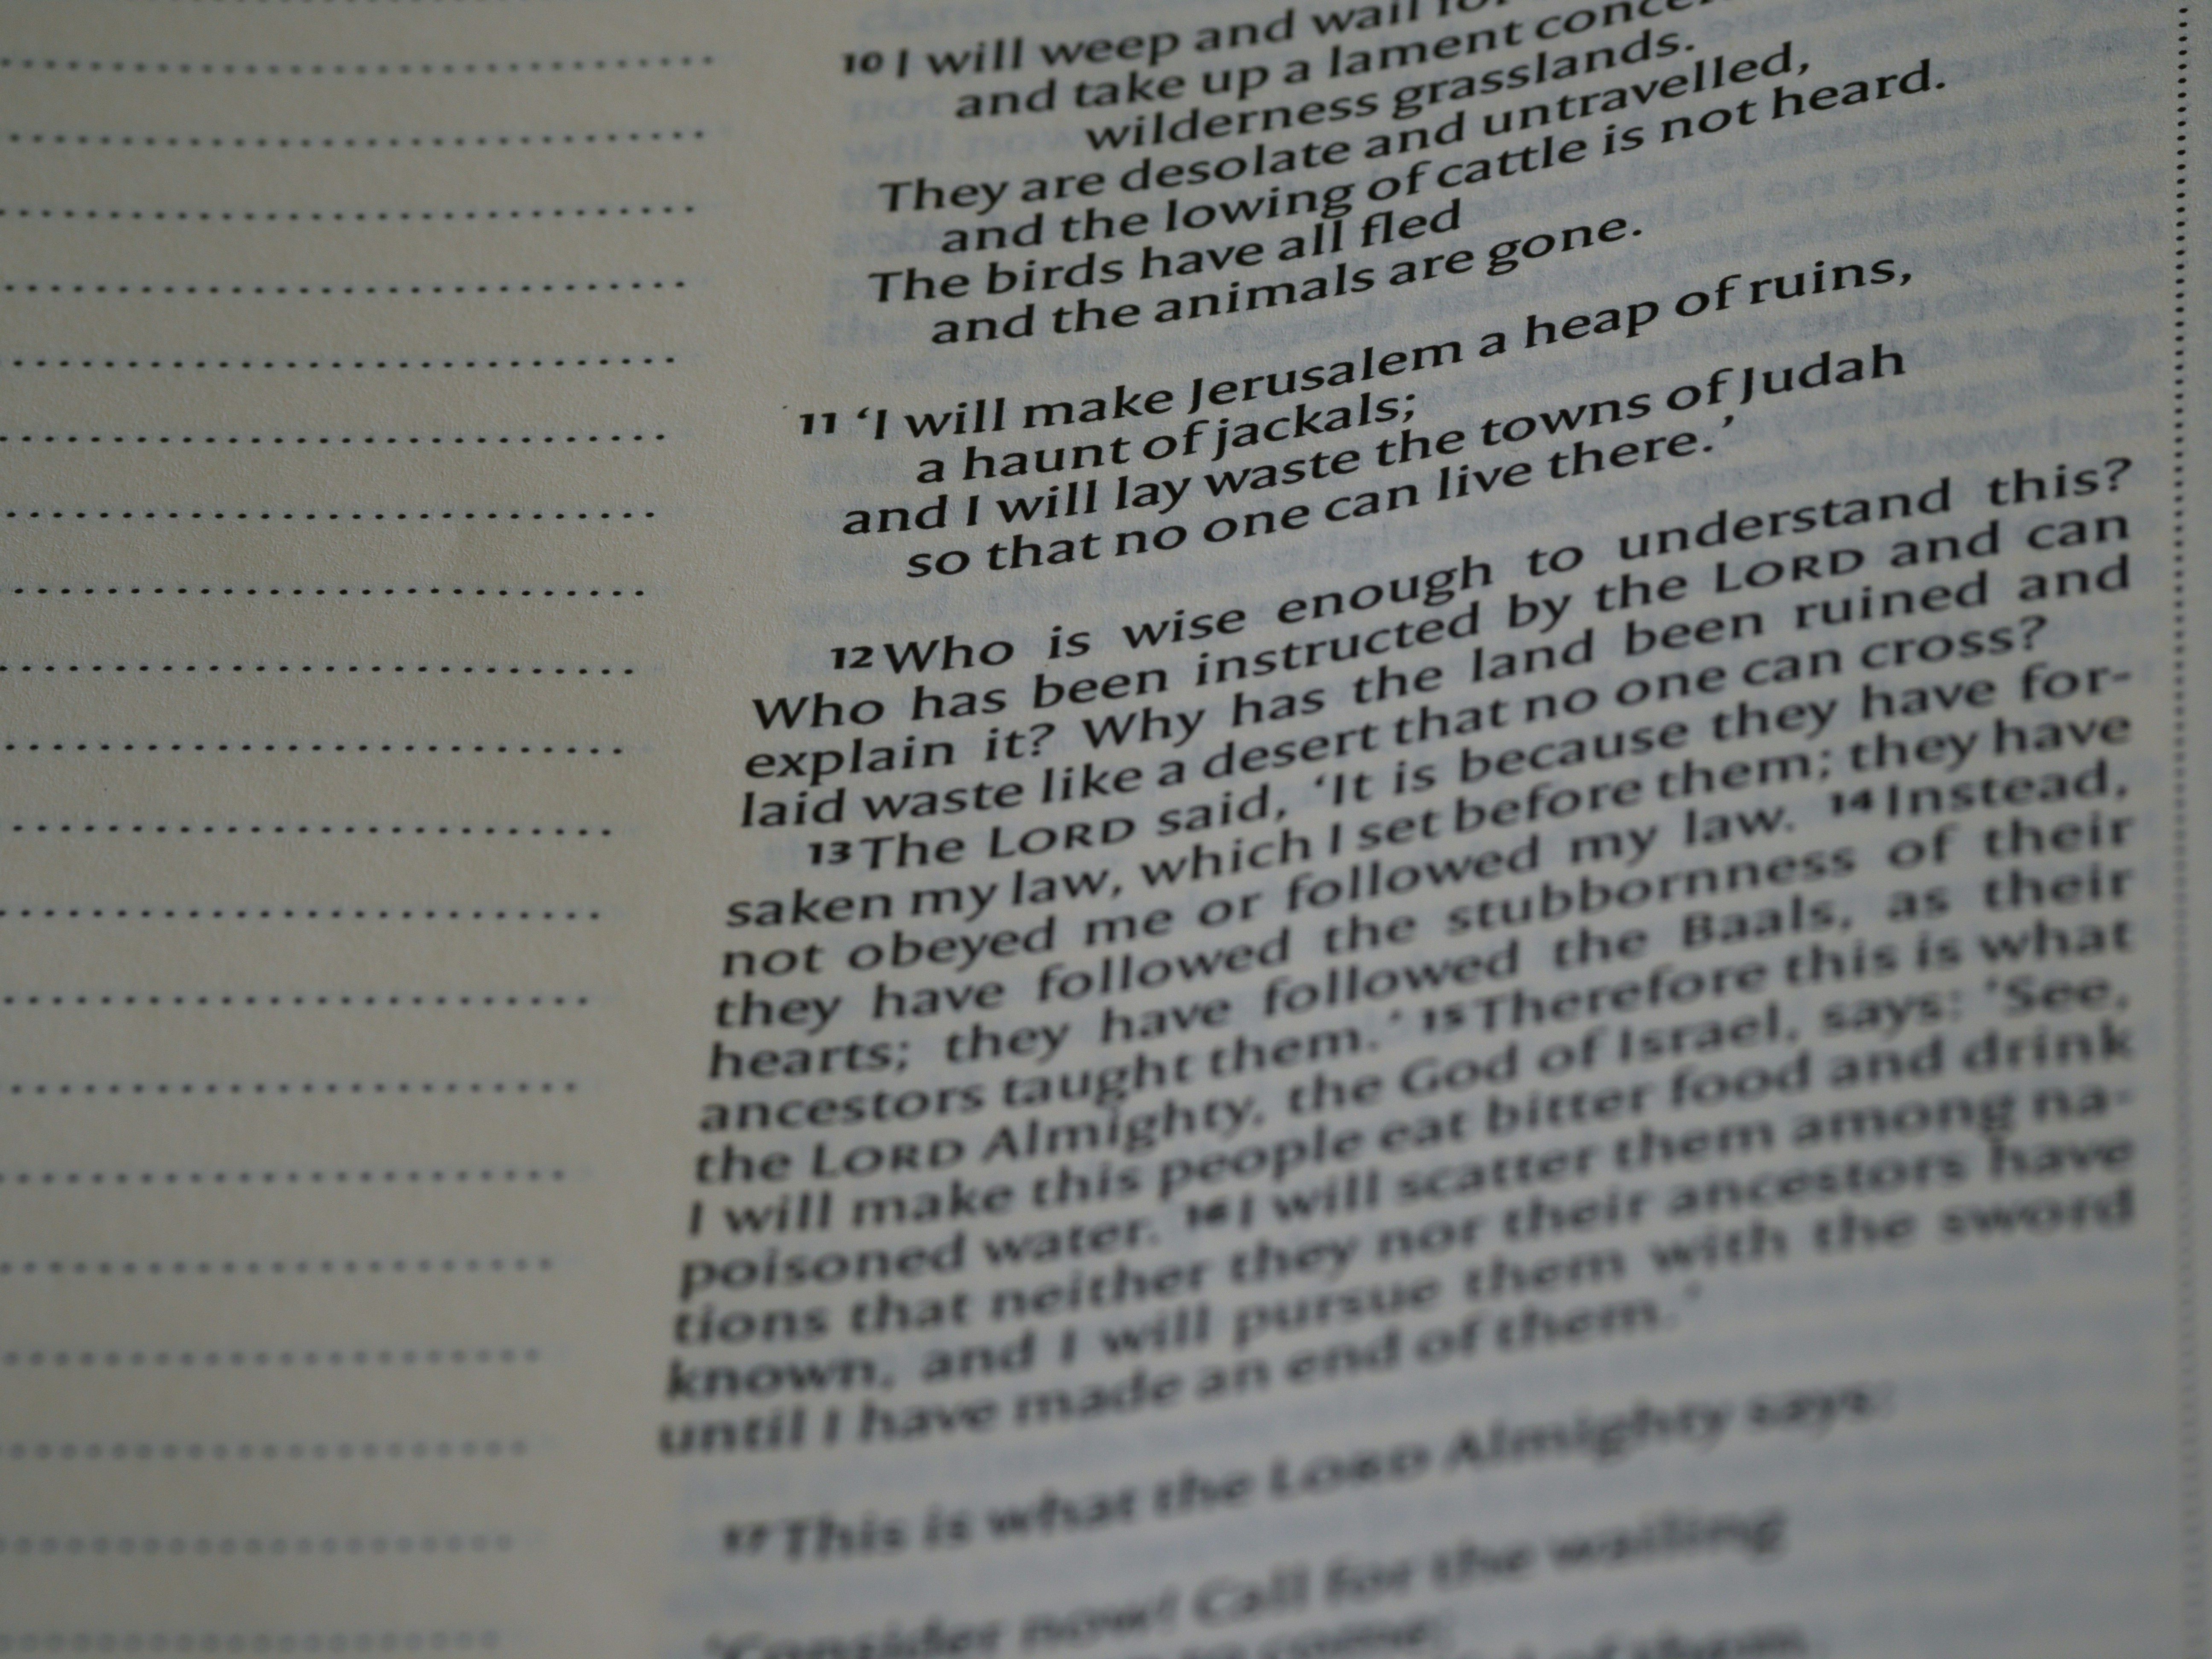 10 I will weep and wail
and take up a lament
wilderness grasslands.
They are desolate and untravelled,
and the lowing of cattle is not heard.
The birds have all fled
and the animals are gone.
11 ‘I will make Jerusalem a heap of ruins,
a haunt of jackals;
and I will lay waste the towns of Judah
so that no one can live there.’
12 Who is wise enough to understand this?
Who has been instructed by the LORD and can
explain it? Why has the land been ruined and
laid waste like a desert that no one can cross?
13 The LORD said, ‘It is because they have for-
saken my law, which I set before them; they have
not obeyed me or followed my law. 14 Instead,
they have followed the stubbornness of their
hearts; they have followed the Baals, as their
ancestors taught them.’ 15 Therefore this is what
the LORD Almighty, the God of Israel, says: ‘See,
I will make this people eat bitter food and drink
poisoned water. 16 I will scatter them among na-
tions that neither they nor their ancestors have
known, and I will pursue them with the sword
until I have made an end of them.’
17 This is what the LORD Almighty says:
‘Consider now! Call for the wailing
to come;
of them